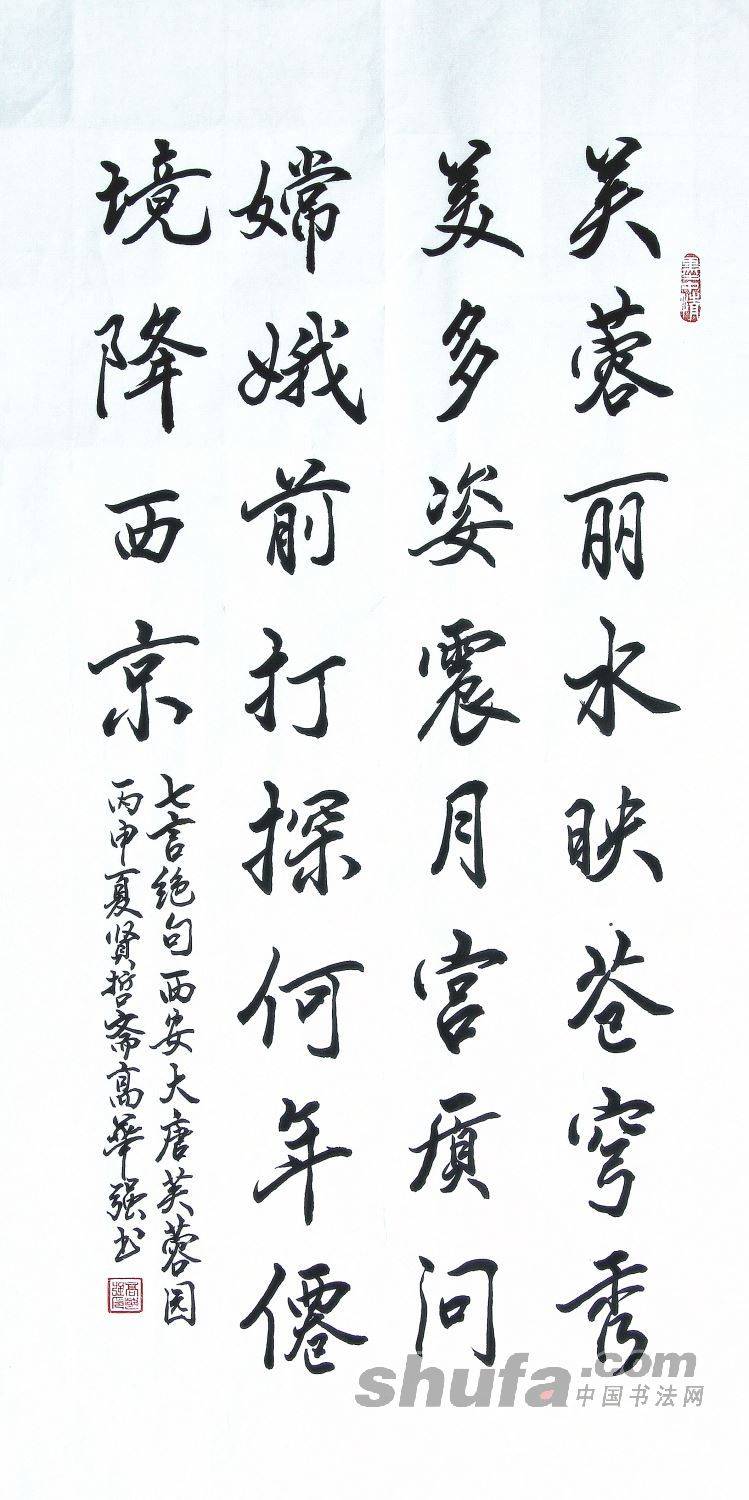 芙蓉丽水映苍穹秀
美多姿震月宫质问
嫦娥前打探何年僊
境降西京
七言绝句西安大唐芙蓉园
丙申夏贤哲斋高华强书
shufa.com
中国书法网